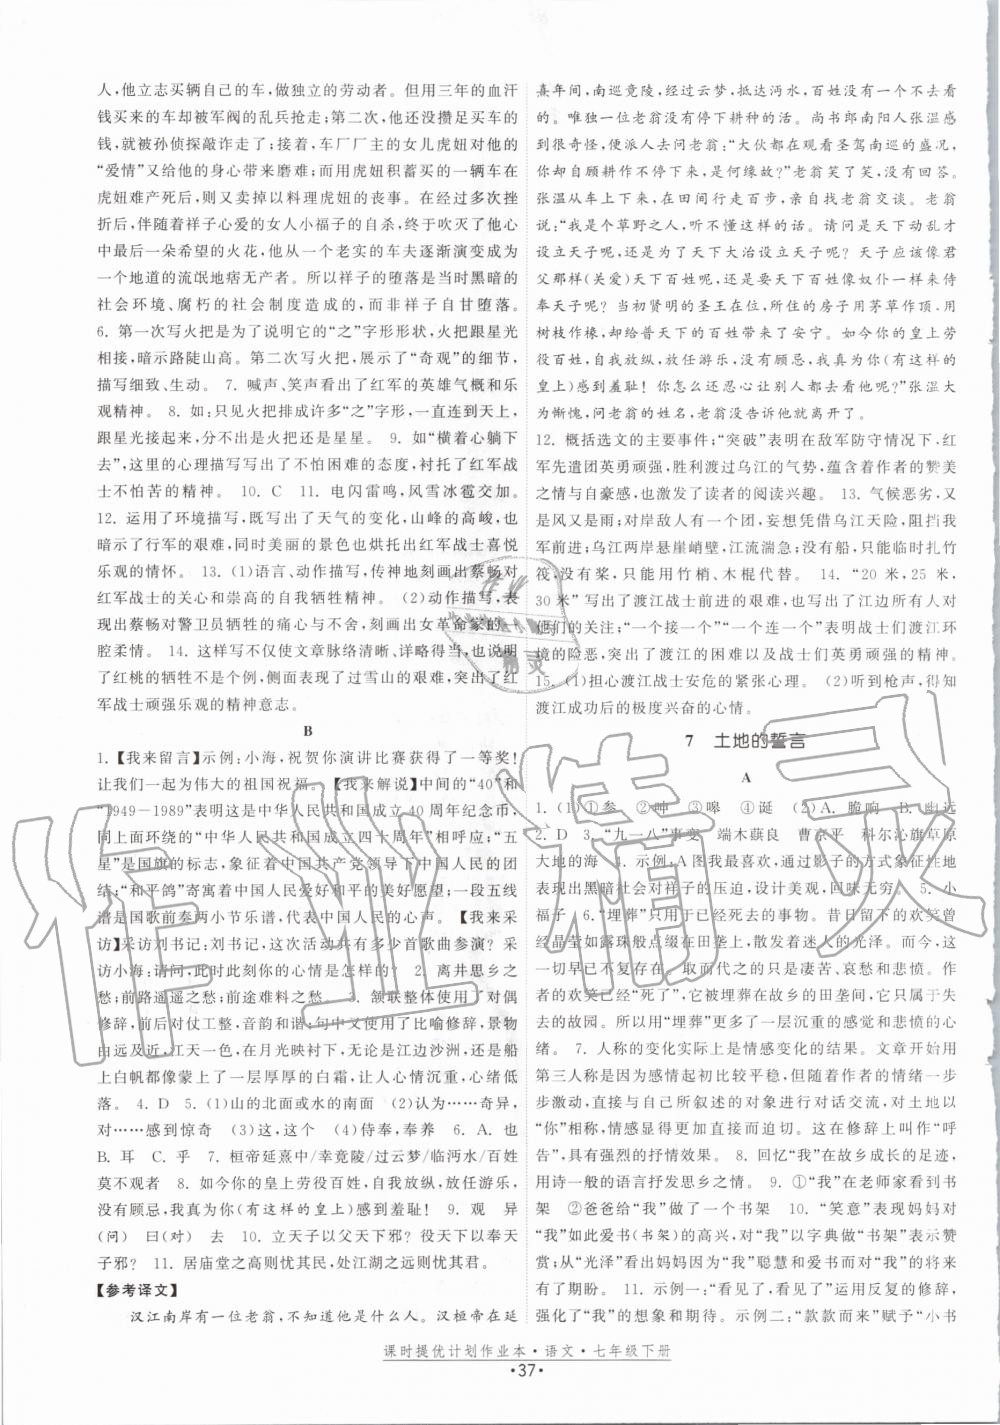 人,他立志买辆自己的车,做独立的劳动者。但用三年的血汗
钱买来的车却被军阀的乱兵抢走;第二次,他还没攒足买车的
钱,就被孙侦探敲诈走了;接着,车厂厂主的女儿虎妞对他的
“爱情”又给他的身心带来磨难;而用虎妞积蓄买的一辆车在
虎妞难产死后,则又卖掉以料理虎妞的丧事。经过多次挫
折后,伴随着祥子心爱的女人小福子的自杀,终于吹灭了他心
中最后一朵希望的火花,他从一个老实的车夫逐渐演变成为
一个地道的流氓地痞无产者。所以祥子的堕落是当时黑暗的
社会环境、腐朽的社会制度造成的,而非祥子自甘堕落。
6. 第一次写火把是为了说明它的“之”字形形状,火把跟星光
相接,暗示路陡山高。第二次写火把,展示了“奇观”的细节,
描写细致、生动。 7. 喊声、笑声看出了红军的英雄气概和乐
观精神。 8. 如:只见火把排成许多“之”字形,一直连到天上,
跟星光接起来,分不出是火把还是星星。 9. 如“横着心躺下
去”,这里的心理描写写出了不怕困难的态度,衬托了红军战
士不怕苦的精神。 10. C 11. 电闪雷鸣,风雪冰雹交加。
12. 运用了环境描写,既写出了天气的变化,山峰的高峻,也
暗示了行军的艰难,同时美丽的景色也烘托出红军战士喜悦
乐观的情怀。 13. (1)语言、动作描写,传神地刻画出蔡畅对
红军战士的关心和崇高的自我牺牲精神。 (2)动作描写,表
现出蔡畅对警卫员牺牲的伤心与不舍,刻画出女革命家的一
腔柔情。 14. 这样写不仅使文章脉络清晰、完整,也说明死
了红桃的牺牲不是个例,侧面表现出了过雪山的艰难,突出了红
军战士顽强乐观的精神意志。
B
1.【我来留言】示例:小海,祝贺你演讲比赛获得了一等奖!
让我们一起为伟大的祖国祝福。 【我来解说】中间的“40”和
“1949—1989”表明这是中华人民共和国成立40周年纪念币,
同上面环绕的“中华人民共和国成立四十周年”相呼应;“五
星”是国旗的标志,象征着中国共产党领导下中国人民的团
结;“和平鸽”寄寓着中国人民爱好和平的美好愿望;一段五线
谱是国歌前奏两小节乐谱,代表中国人民的心声。【我来采
访】采访刘书记:刘书记,这次活动共有多少首歌曲参演?采
访小海:请问,此时此刻你的心情是怎样的? 2. 离井思乡之
愁;前路遥遥之愁;前途难料之愁。 3. 颔联整体使用了对偶
修辞,前后对仗工整,音韵和谐;句中又使用了比喻修辞,景物
由远及近,江天一色,在月光映衬下,无论是江边沙洲,还是船
上白帆都像蒙上了一层厚厚的白霜,让人心情沉重,备感失
落。 4. D 5. (1)山的北面或水的南面 (2)认为……奇异,
对……感到惊奇 (3)这,这个 (4)侍奉,奉养 6. A. 也
B. 耳 C. 乎 7. 桓帝延熹中/幸竟陵/过云梦/临沔水/百姓
莫不观者 8. 如今你的皇上劳役百姓,自我放纵,放任游乐,
没有顾忌,我真为你(有这样的皇上)感到羞耻! 9. 观 异
(问) 曰(对) 去 10. 立天子以父天下邪?役天下以奉天
子邪? 11. 居庙堂之高则忧其民,处江湖之远则忧其君。
【参考译文】
汉江南岸有一位老翁,不知道他是什么人。汉桓帝在延
熹年间,南巡竟陵,经过云梦,抵达沔水,百姓没有不观看的
。唯独一位老翁没有停下耕种的活。尚书郎南阳人张温感
到很奇怪,便派人去问老翁:“大伙都在观看圣驾南巡的盛况,
您却自顾耕作不观看,是何缘故?”老翁笑了笑,没有回答。
张温从车上下来,在田间和老翁交谈。老翁
说:“我是个草野之人,听不懂这样的话。请问是天下动乱才
设立天子呢?还是为了天下大治设立天子呢?天子应该像君
父那样(关爱)天下百姓呢,还是天下百姓像奴仆一样来侍
奉天子呢?当初贤明的圣王在位时,所住的房子用茅草作顶,用
树枝作椽,却给普天下的百姓带来了安宁。如今你的皇上劳
役百姓,自我放纵,放任游乐,没有顾忌,我真为你(有这样的
皇上)感到羞耻!你怎么还忍心让别人都来观看他呢?”张温大
为惭愧,问老翁的姓名,老翁没告诉他就离去了。
12. 概括选文的主要事件;“突破”表明在敌军防守情况下,红
军先头团英勇顽强,胜利渡过乌江的气势,蕴含着作者的赞美
之情与自豪感,也激发了读者的阅读兴趣。 13. 气候恶劣,又
是风又是雨;对岸敌人有一个团,妄想凭借乌江天险,阻挡我
军前进;乌江两岸悬崖峭壁,江流湍急;没有船,只能临时扎竹
筏,没有桨,只能用竹梢、木棍代替。 14. “20米,25米,
30米”写出了渡江战士前进的艰难,也写出了江边所有人对他
们的关注;“一个接一个”“一个连一个”表明战士们渡江环境
的险恶,突出了渡江的困难以及战士们英勇顽强的精神。
15. (1)担心渡江战士安危的紧张心理。 (2)听到枪声,得知
渡江成功后的极度兴奋的心情。
7 土地的誓言
A
1. (1)①参 ②呻 ③嗥 ④诞 (2)A. 脆响 B. 幽远
2. D 3. “九一八”事变 端木蕻良 曹京平 科尔沁旗草原
大地的海 4. 示例:A图我最喜欢,通过影子的方式象征性地
表现出黑暗社会对祥子的压迫,设计美观,回味无穷。 5. 小
福子 6. “埋葬”只用于已经死去的事物。昔日留下的欢笑曾
经晶莹如露珠般点缀在田垄上,散发着迷人的光泽。而这
一切均已不复存在,取而代之的只是凄苦、哀愁和悲愤。作
者的欢笑已经“死了”,它被埋葬在故乡的田垄间,埋葬在失
去的故园。所以用“埋葬”更多了一层沉重的感觉和悲愤的心
绪。 7. 人称的变化实际上是情感变化的结果。文章开始使用
第三人称是因为感情起初比较平稳,但随着作者的情绪一步
步激动,不知不觉就和叙述的对象进行对话交流,对土地以
“你”相称,情感也显得更加直接而迫切。这在修辞上叫作“呼
告”,具有强烈的抒情效果。 8. 回忆“我”在故乡成长的足迹,
用诗一般的语言抒发思乡之情。 9. ①“我”在老师家看到书
架 ②爸爸给“我”做了一个书架 10. “笑意”表现出妈妈对
“我”如此喜爱书(书架)的高兴,对“我”以字典做“书架”表示赞
赏;从“光泽”看出妈妈因为“我”聪慧和爱书而对“我”的将来有
了期盼。 11. 示例一:“看见了,看见了”运用反复的修辞,
强化了“我”的想象和期待。示例二:“款款而来”赋予“小书
课时提优计划作业本·语文·七年级下册
·37·